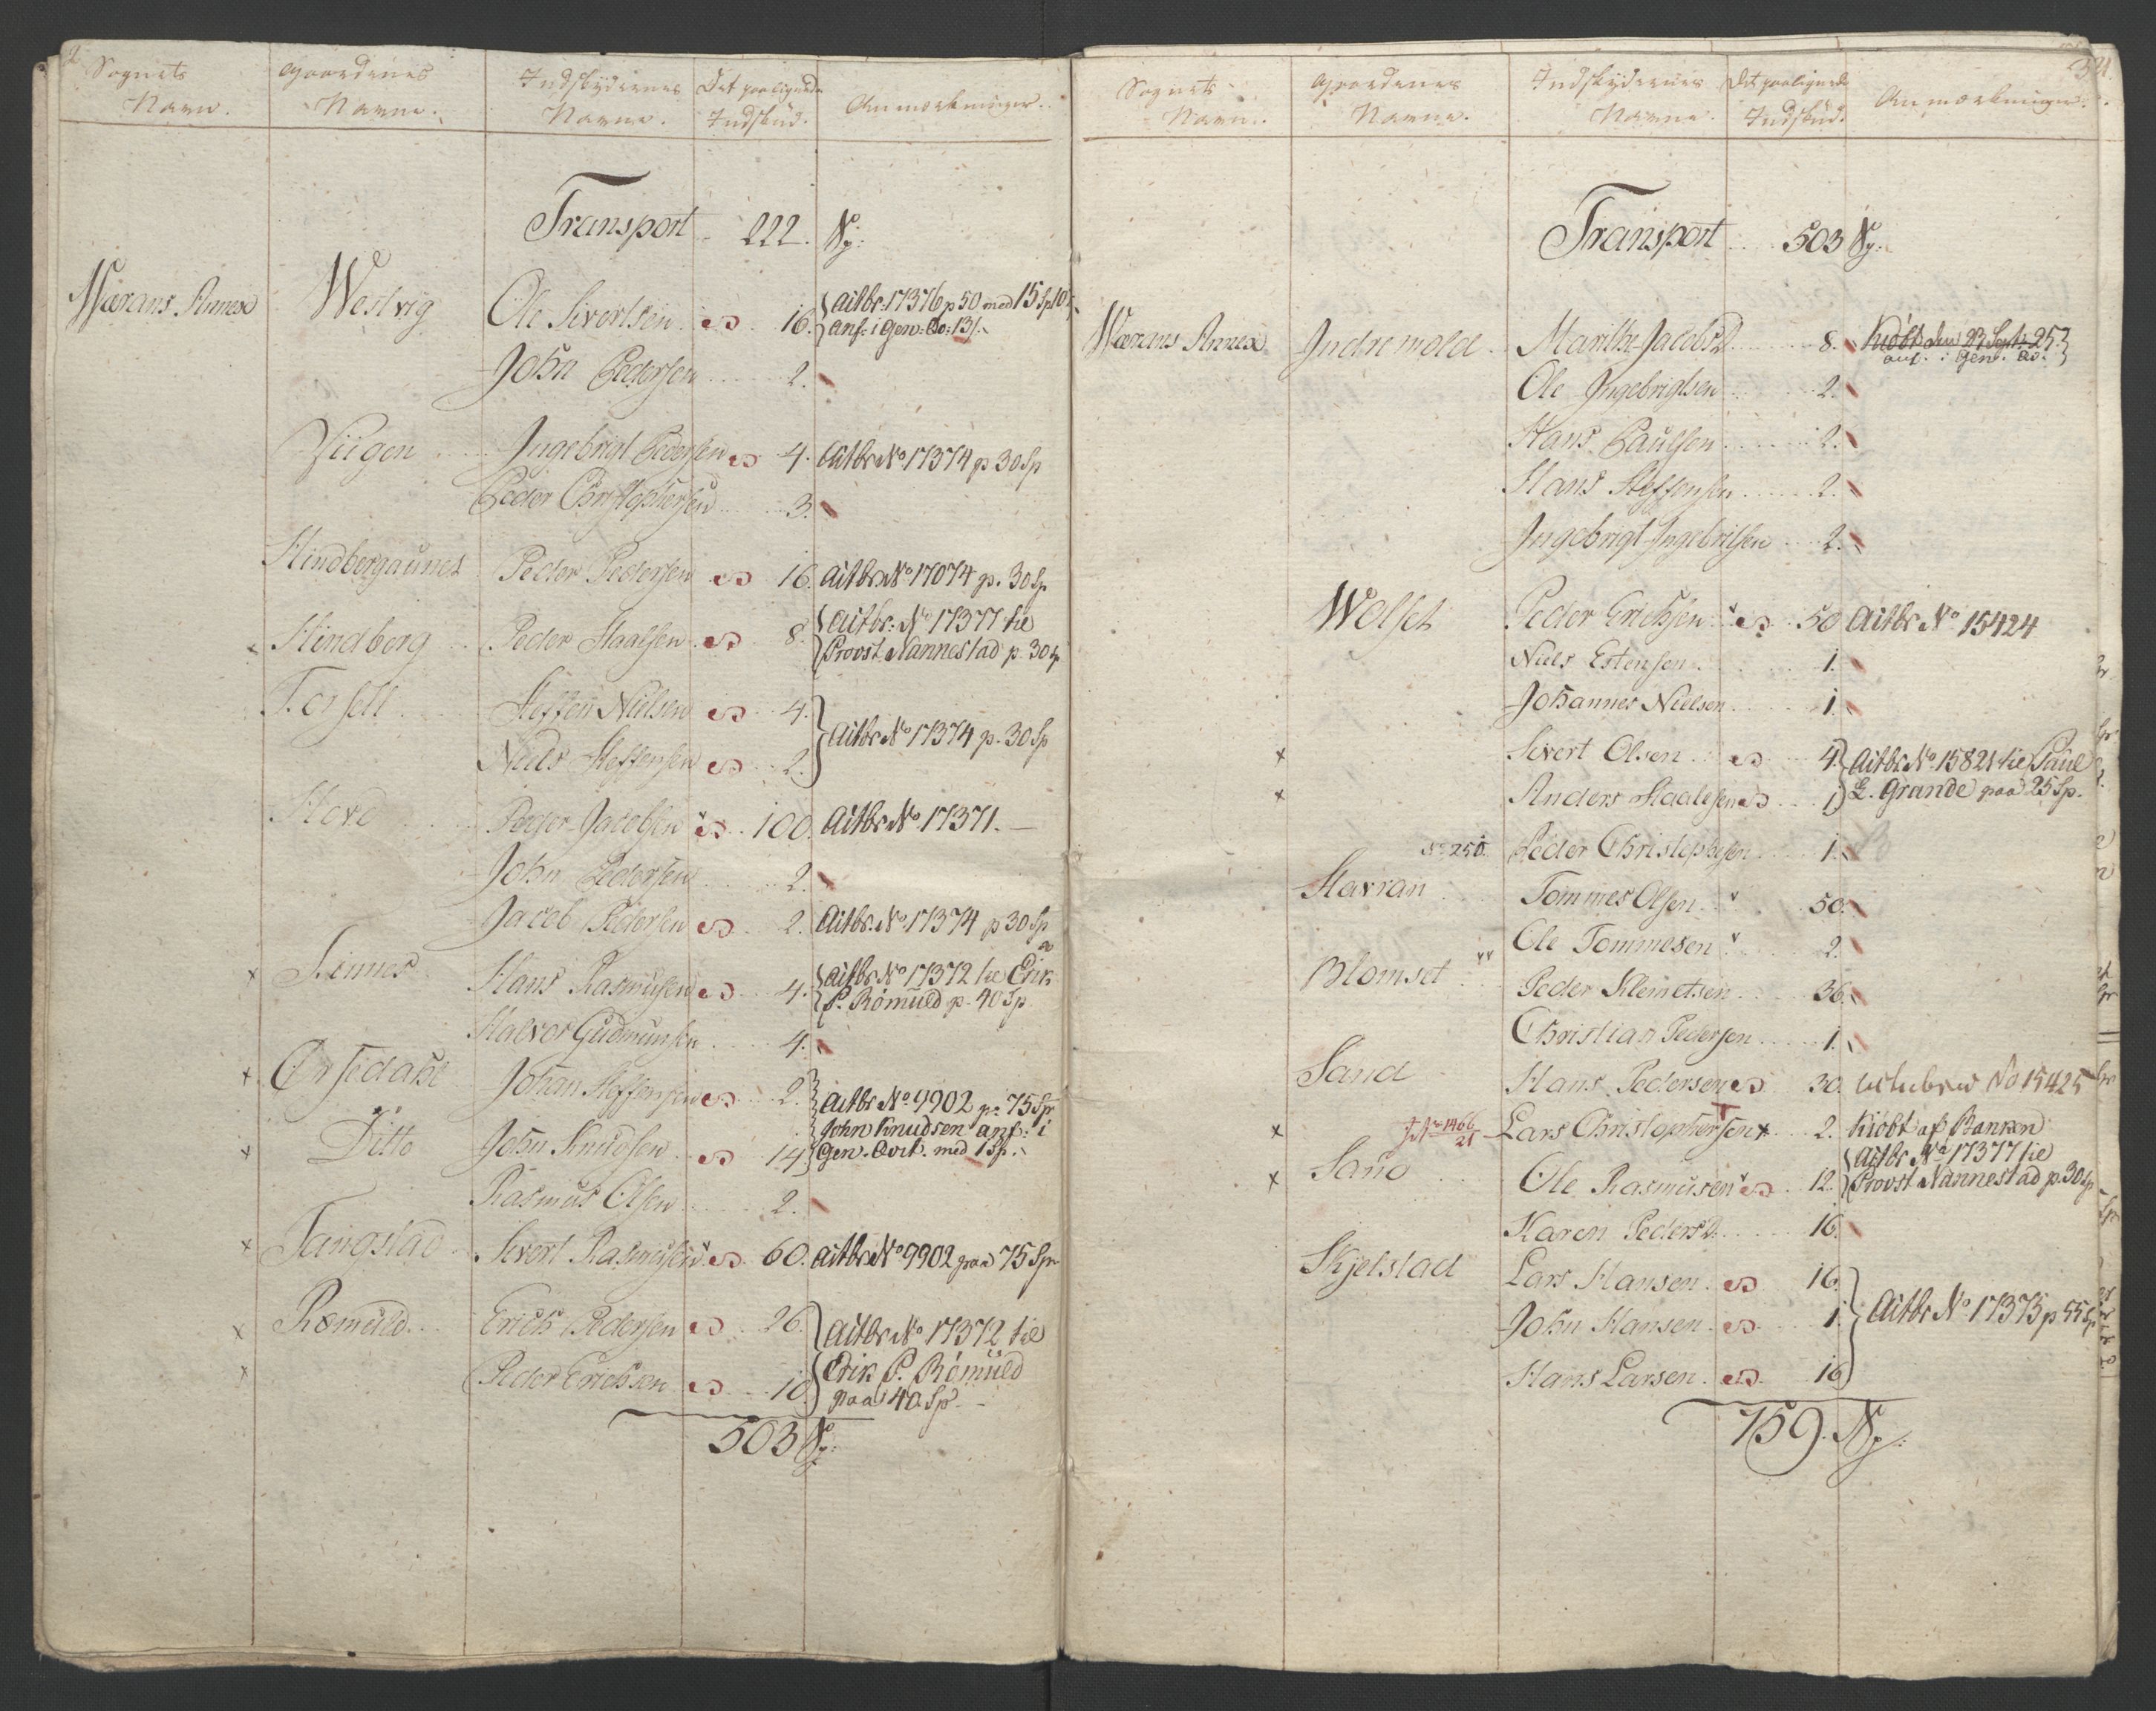 2
Sognets Navn. Gaardenes Navne. Indskydernes Navne. Det paalignede Indskud. Anmærkninger.
Transport 222. Sp:
Wærans Annex Westvig Ole Sivertsen 16. Actbr: 17376 p 50 med 15 Sp 10
anf: i Gen: Qv: 131.
John Pedersen 2.
Viigen Ingebrigt Pedersen 4. Actbr No 17374 p 30 Sp
Peder Christophersen 3.
Hindbergaunet Peder Pedersen 16. Actbr No 17074 p. 30 Sp.
Hindberg Peder Haalsen 8. Actbr: No 17377 til
Provst Nannestad p. 30 Sp
Forsell Steffen Nielsen 4.
Niels Steffensen 2. Actbr No 17374 p. 30 Sp
Hovd Peder Jacobsen 100. Actbr No 17371.
John Pedersen 2.
Jacob Pedersen 2. Actbr: No 17374 p 30 Sp
x Sinnes Hans Rasmusen 4. Actbr No 17372 til Erik
P. Römuld p. 40 Sp
Halvor Gudmunsen 4.
x Ørsedahl Johan Steffensen 2. Actbr No 9902 p. 75 Sp
x Ditto John Knudsen 14. John Knudsen anf: i
Gen. Qvit. med 1 Sp.
Rasmus Olsen 2.
x Tangstad Sivert Rasmusen 60. Actbr No 9902 paa 75 Sp
x Römuld Erich Pedersen 26. Actbr No 17372 til
x Peder Erichsen 10. Erik P. Römuld
paa 40 Sp.
503 Sp:
321.
Sognets Navn. Gaardenes Navne. Indskydernes Navne. Det paalignede Indskud. Anmærkninger.
Transport 503 Sp:
Wærans Annex Indremold Marithe Jacobsd. 8. Kiöbt den 23 Sept: 25
anf. i Gen. Qv.
Ole Ingebrigtsen 2.
Hans Paulsen 2.
Hans Steffensen 2.
Ingebrigt Ingebritsen 2.
Wolset Peder Erichsen 50 Actbr No 15424
Niels Estensen 1.
Johannes Nielsen 1.
x Sivert Olsen 4. Actbr No 15821 til Paul
x Anders Haalesen 1. L. Grande paa 25 Sp.
No 250. Peder Christophersen 1.
Havran Tommes Olsen 50.
Ole Tommesen 2.
Blomset Peder Klemetsen 36.
Christian Pedersen 1.
Sand Hans Pedersen 30. Actiebrev No 15425
x No 1466 21 Lars Christophersen 2. Kiöbt af Banken
x Sand Ole Rasmusen 12. Actbr No 17377 til
Provst Nannestad p. 30 Sp
Karen Pedersd. 16.
Skjelstad Lars Hansen 16.
John Hansen 1. Actbr No 17375 p 55 Sp
Hans Larsen 16
759. Sp: